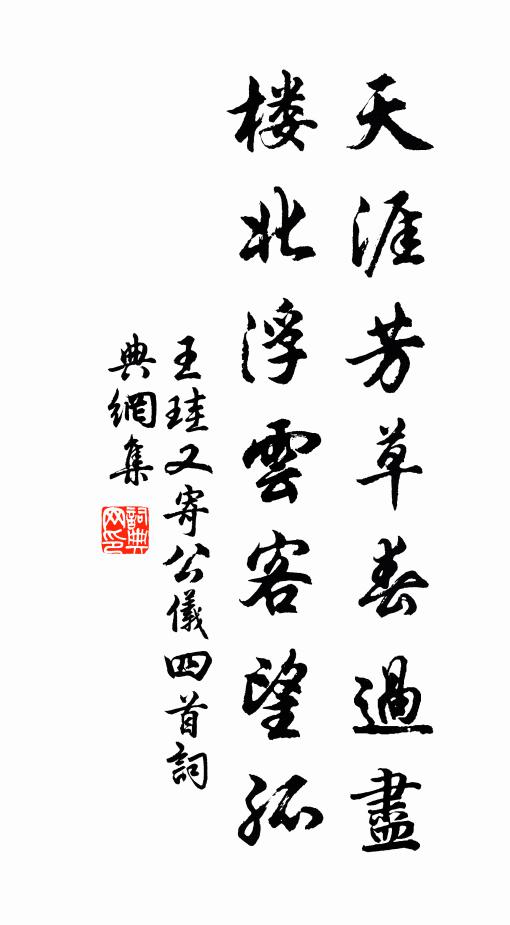 天涯芳草春過盡
楼北浮雲客望孤
王珪又寄公儀四首詞
典網集
詞典
网印